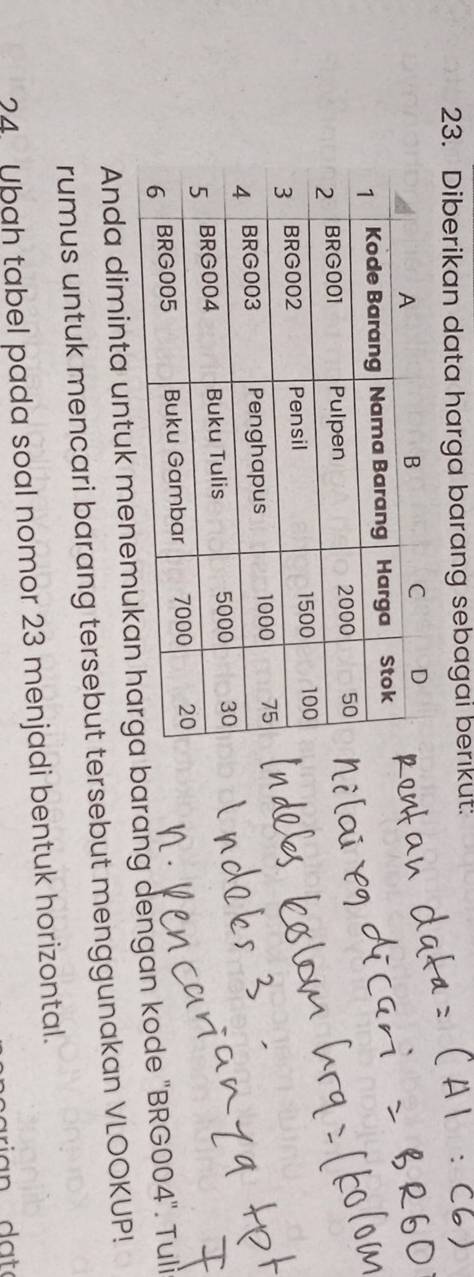 23. Diberikan data harga barang sebagai berikut:
A B C D
1 Kode Barang Nama Barang Harga Stok
2 BRG001 Pulpen 2000 50
3 BRG002 Pensil 1500 100
4 BRG003 Penghapus 1000 75
5 BRG004 Buku Tulis 5000 30
6 BRG005 Buku Gambar 7000 20
Rentan data = (A1 : C6)
nilai yg dicari = BRG0
Indeks kolom hrg = (kolom
Indeks 3
n. Pencarian yg tpt
Anda diminta untuk menemukan harga barang dengan kode "BRG004". Tuli
rumus untuk mencari barang tersebut tersebut menggunakan VLOOKUP!
24. Ubah tabel pada soal nomor 23 menjadi bentuk horizontal.